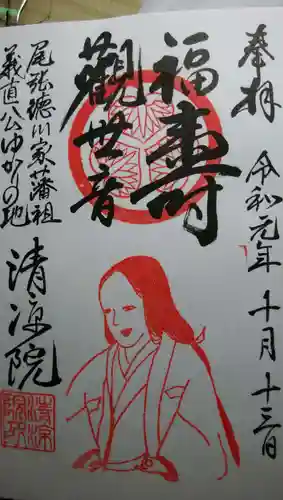 奉拝
令和元年十月十三日
福壽
觀世音
尾張徳川家藩祖
義直公ゆかりの地
清凉院